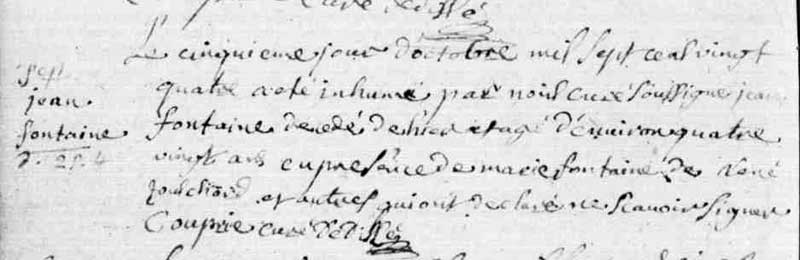 curé de tillé
Le cinquieme jour doctobre mil sept cent vingt
quatre a eté inhumé par nous curé soussigné jean
fontaine decedé de hier et agé d'environ quatre
vingt ans en presence de marie fontaine de René
et autres qui ont declaré ne scavoir signer
Couprie curé de tillé
Sept
jean
fontaine